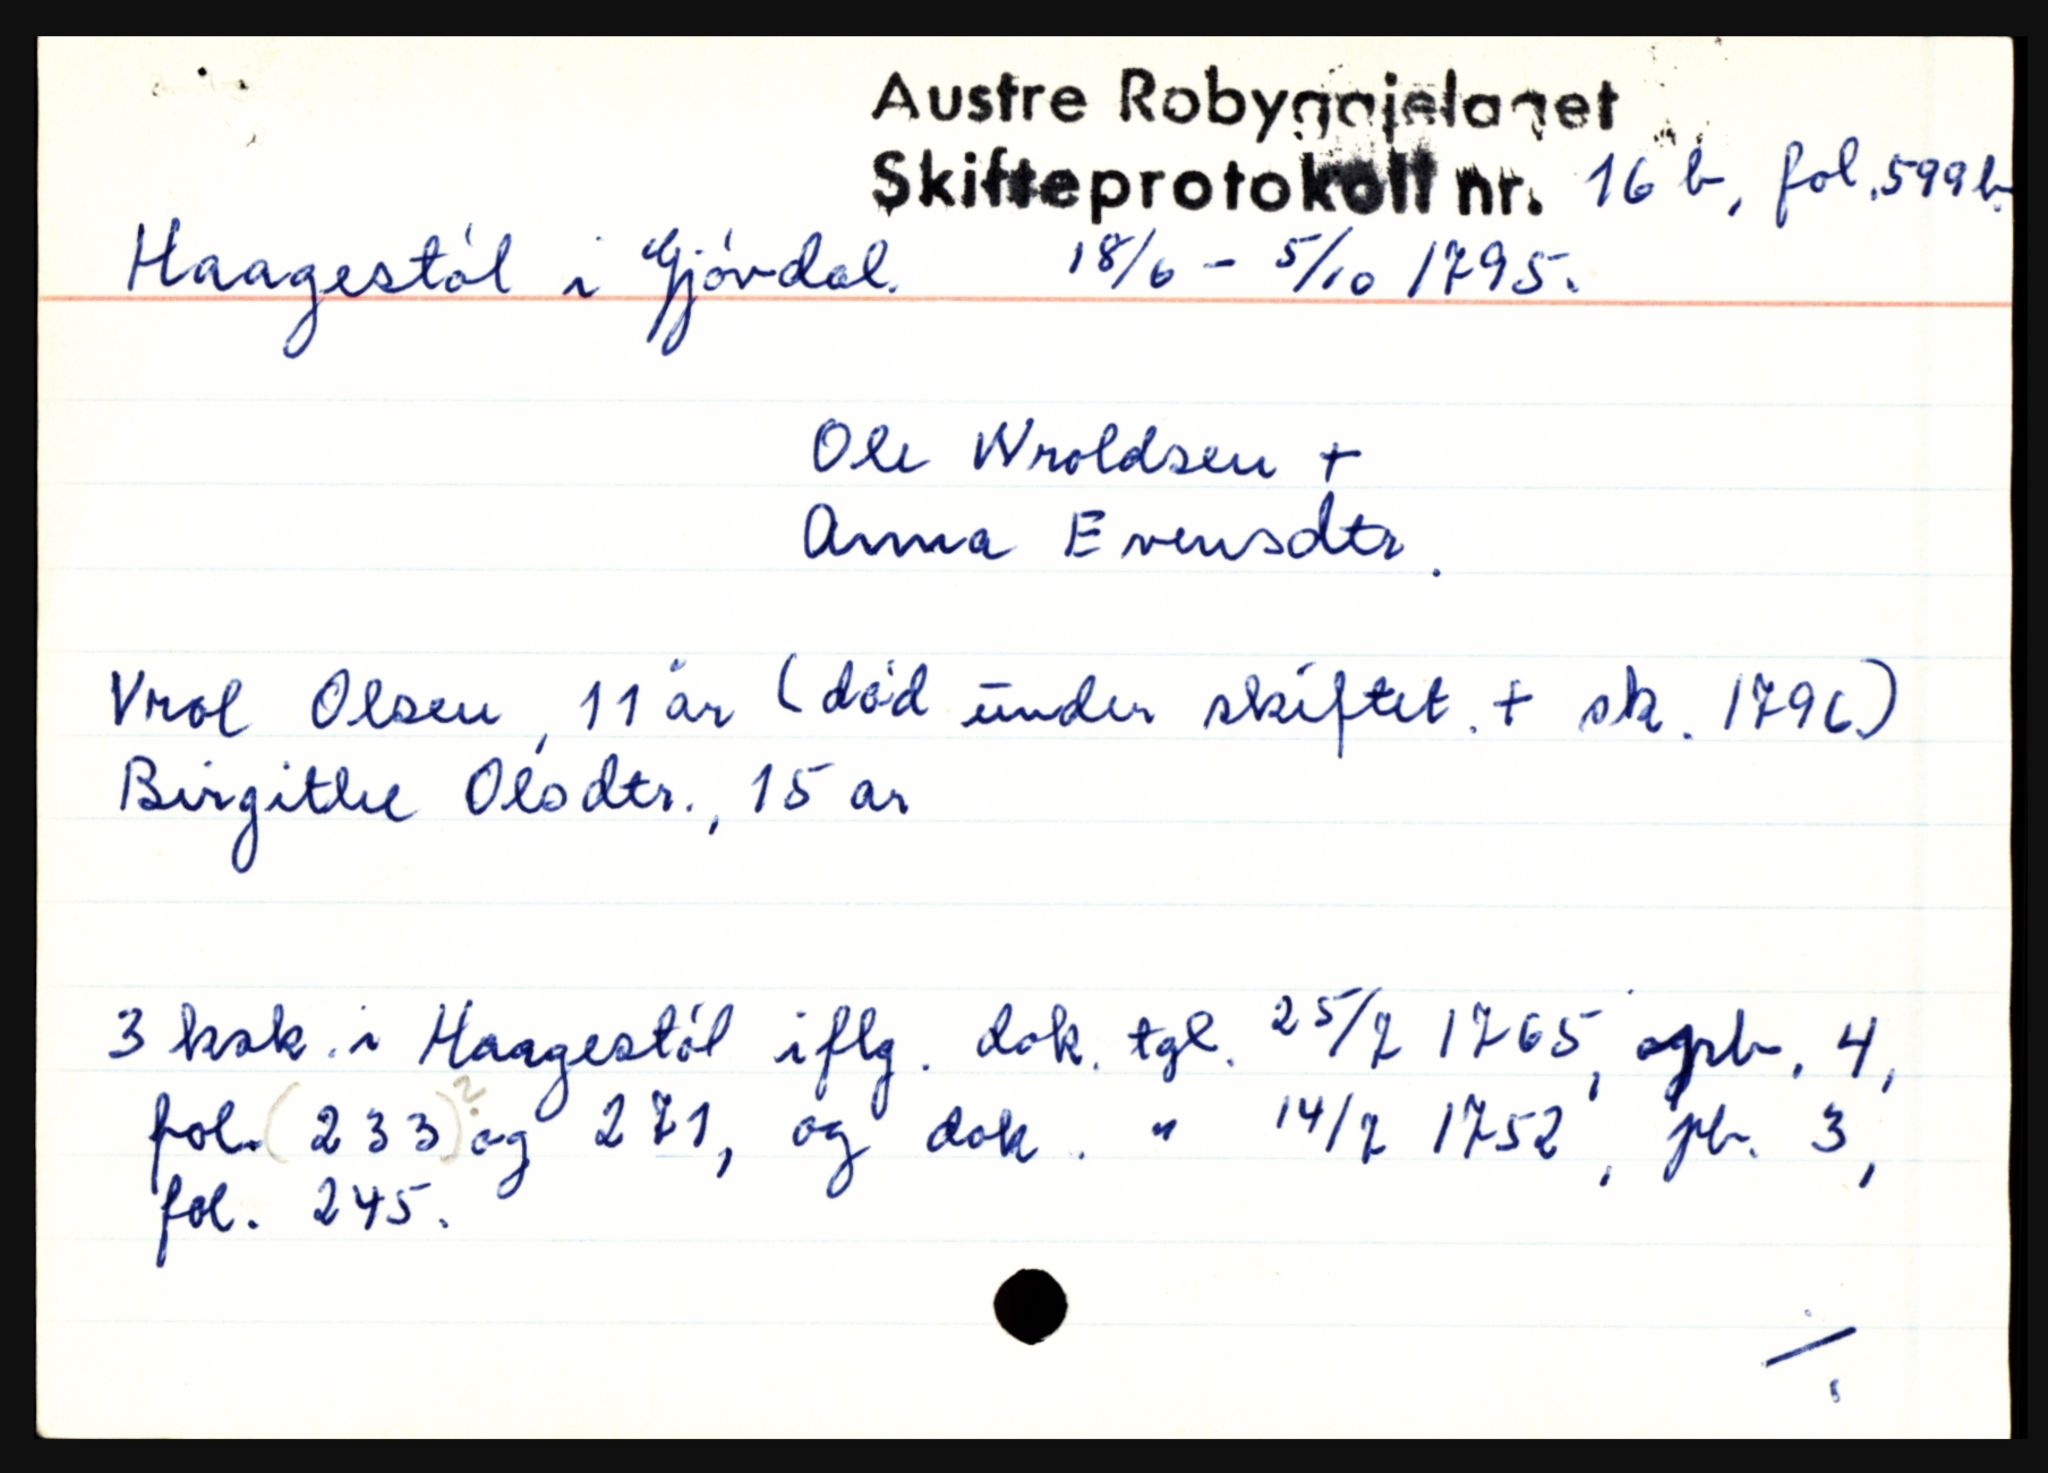 Austre Robyggjelaget
Skifteprotokoll nr. 16 b, fol. 599 b.
Haagestøl i Gjøvdal. 18/6 - 5/10 1795.
Ole Wroldsen +
Anna Evensdtr.
Vrol Olsen, 11 år (død under skiftet. + sk. 1796)
Birgithe Olsdtr., 15 ar
3 ksk. i Haagestøl iflg. dok. tgl. 25/7 1765, pb. 4,
fol. (233)? og 271, og dok. " 14/7 1752, pb. 3,
fol. 245.